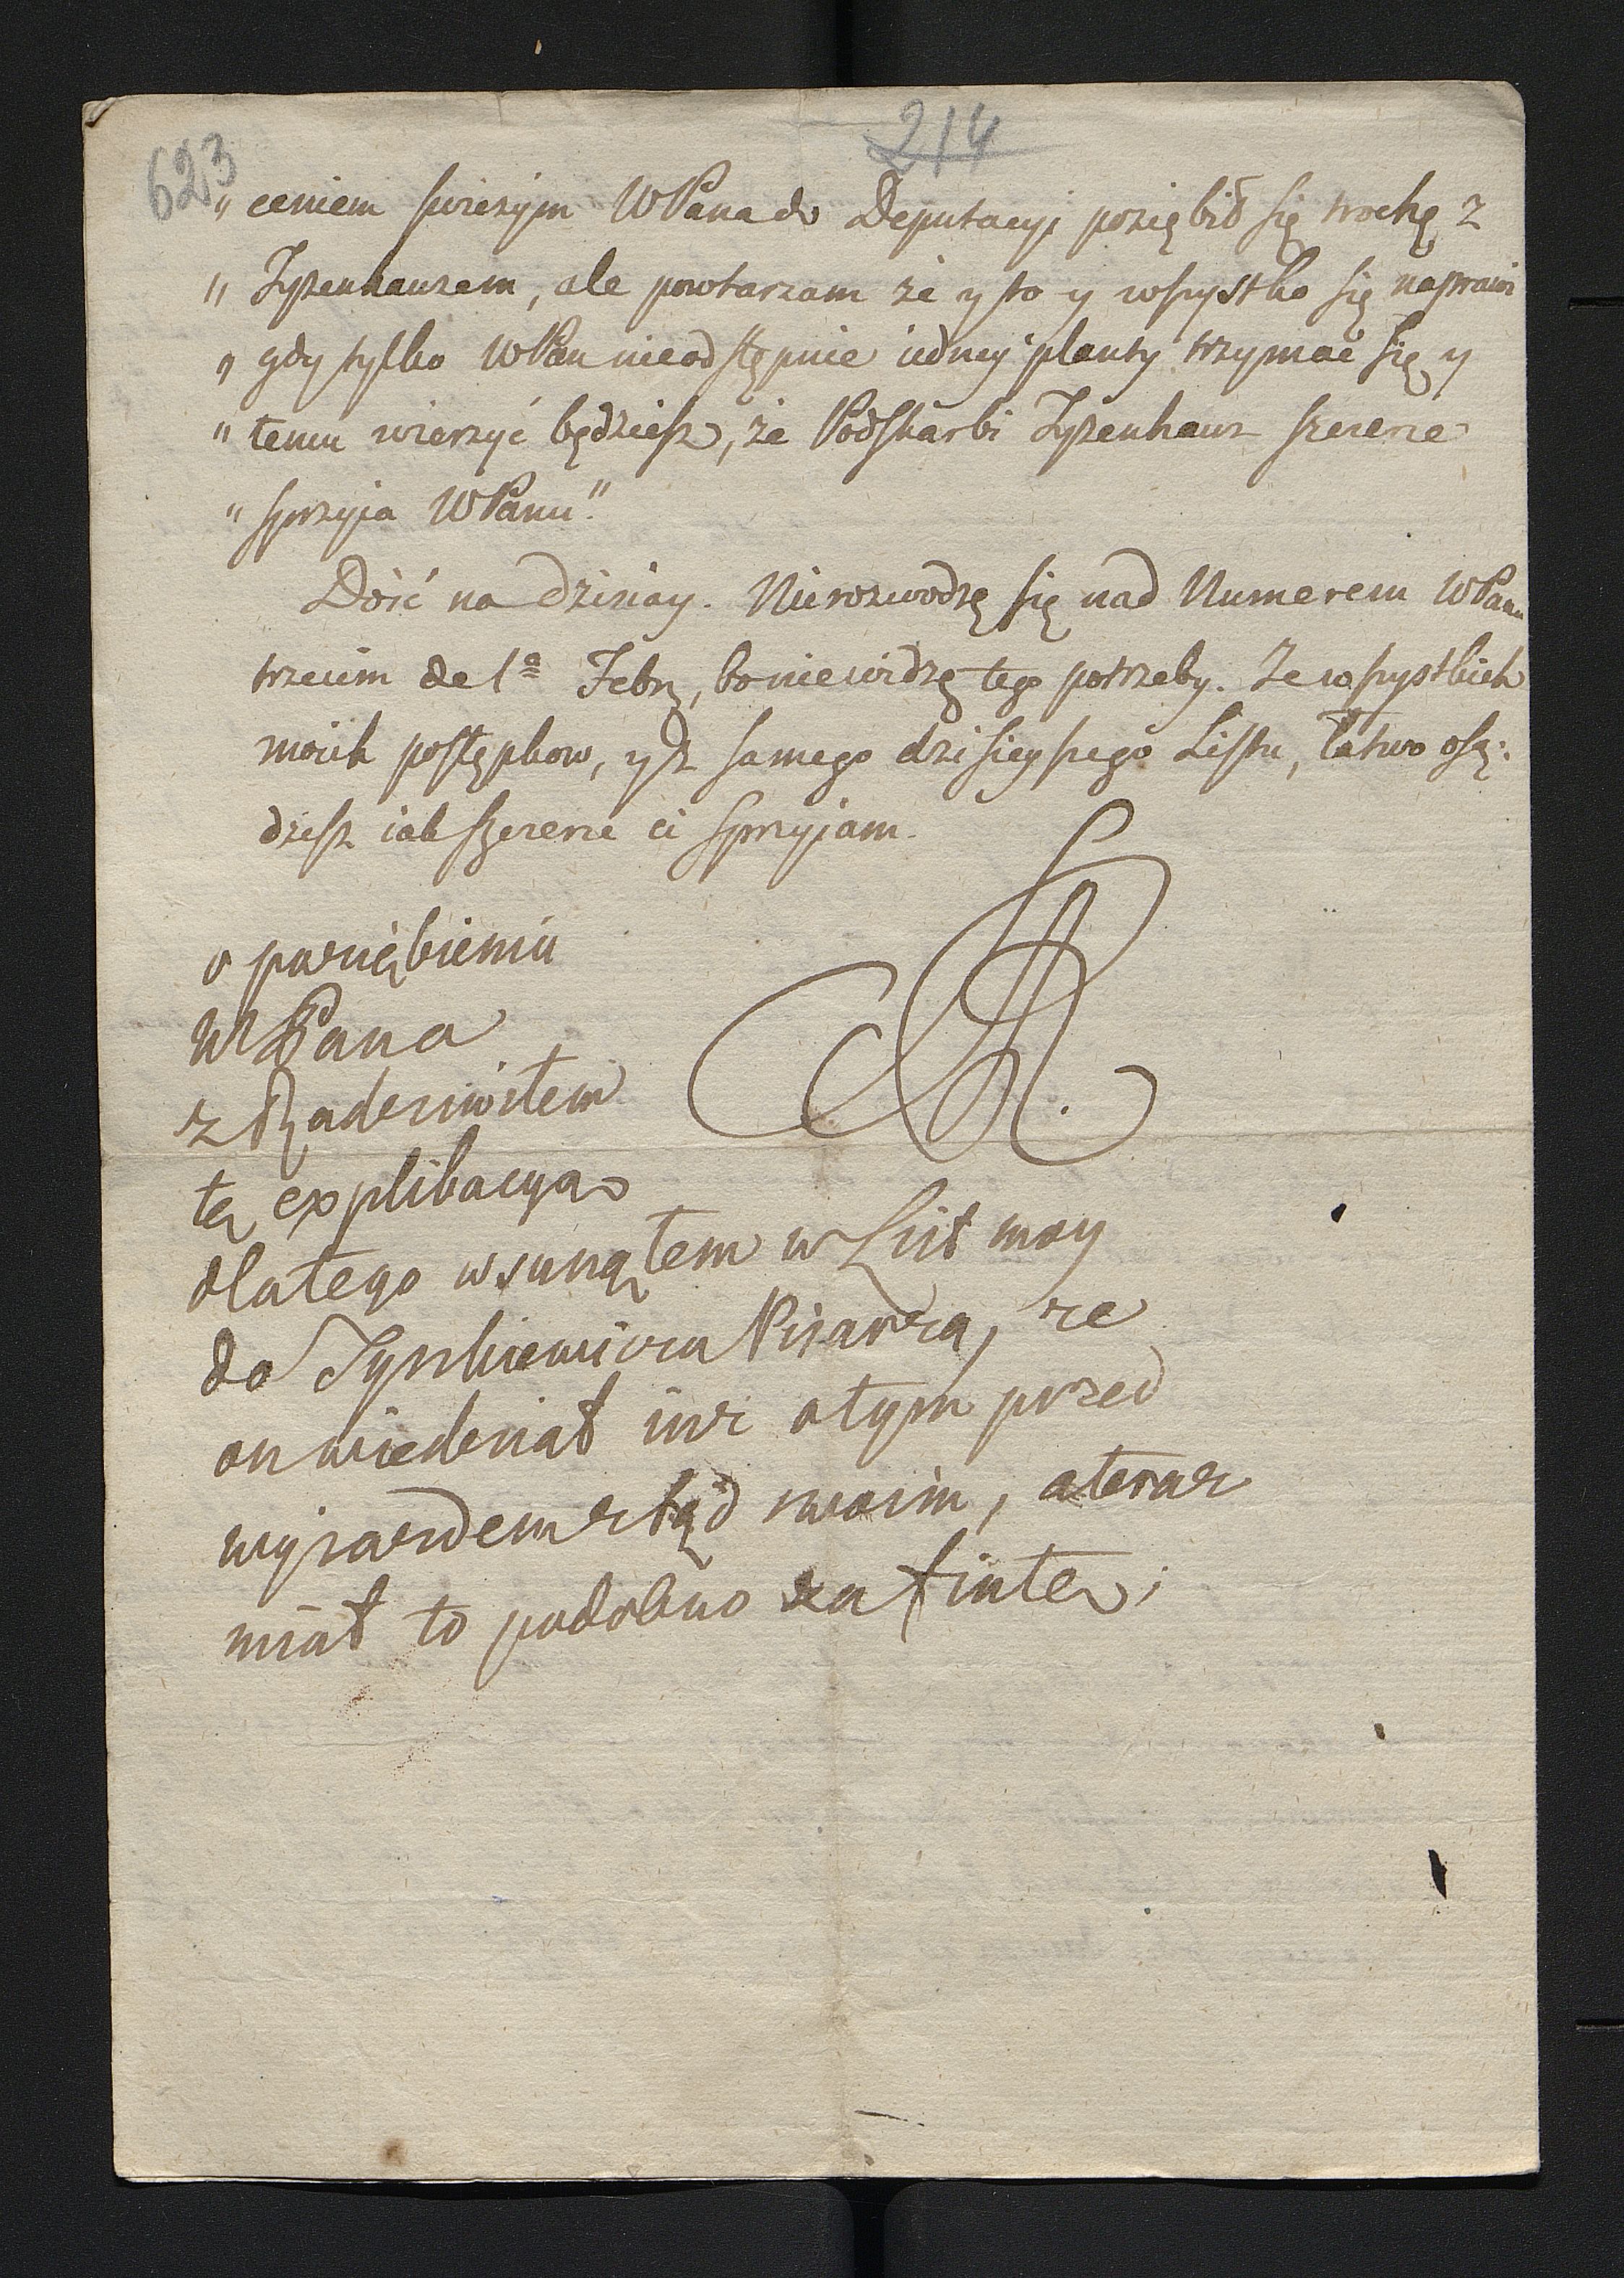 623
214
„ ceniem swieżym WPana do Deputacyi poziębił się trochę z
„ Tyzenhauzem, ale powtarzam że y to y wszystko się naprawi
„ gdy tylko WPan nieodstępnie iedney planty trzymać się y
„ temu wierzyć będziesz, że Podskarbi Tyzenhauz szczerze
„ sprzyja WPanu."
Dość na dzisiay. Nierozwodzę się nad Numerem WPana
trzecim de 1ª Febr, bo niewidzę tego potrzeby. Ze wszystkich
moich postępkow, y z samego dzisieyszego Listu, łatwo osą:
dzisz iak szczerze ci sprzyjam.
SAR.
o poziębieniu
WPana
z Radziwiłem
tę explikacya
dlatego wsunąłem w List moy
do Tyszkiewicza Pisarza, ze
on wiedział iuż o tym przed
wyjazdem ztąd swoim, a teraz
miał to podobno za fintę;